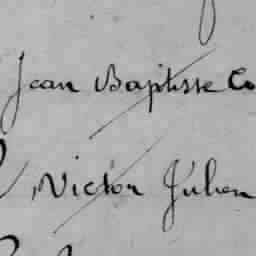 Jean Baptiste Co
Victor Julien